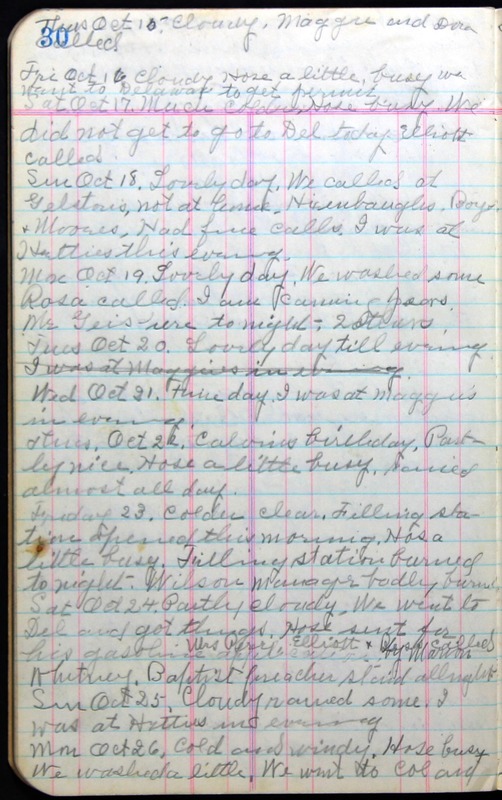 30
Thurs Oct 15. Cloudy, Maggie and Dora
called
Fri Oct 16 Cloudy Hose a little, busy we
want to Delaware to get permit.
Sat Oct 17. Much Hose busy. We
did not get to go to Del. today Elliott
called
Sun Oct 18, Lovely day. We called at
not at home. Boyer
+ Moores, Had fine calls, I was at
Hatties this evening
Mon Oct 19. Lovely day. We washed some
Rosa called. I am canning pears.
Mr Geis here tonight,
Tues Oct 20. Lovely day till evening
I was at Maggies in evening
Wed Oct 21. Fine day. I was at Maggie's
in evening.
Thurs, Oct 22, Calvins birthday, Part-
ly nice, Hose a little busy, rained
almost all day.
Friday 23. Colder clear. Filling sta-
tion opened this morning, Hos a
little busy. Filling station burned
tonight. Wilson Manager badly burned
Sat Oct 24 Partly Cloudy. We went to
Del and got things. Hose sent for
Mrs Elliott + called
his gasoline Marion
Whitney, Baptist preacher staid all night
Sun Oct 25, Cloudy rained some. I
was at Hatties in evening
Mon Oct 26, Cold and windy, Hose busy
We washed a little, We went to Col and